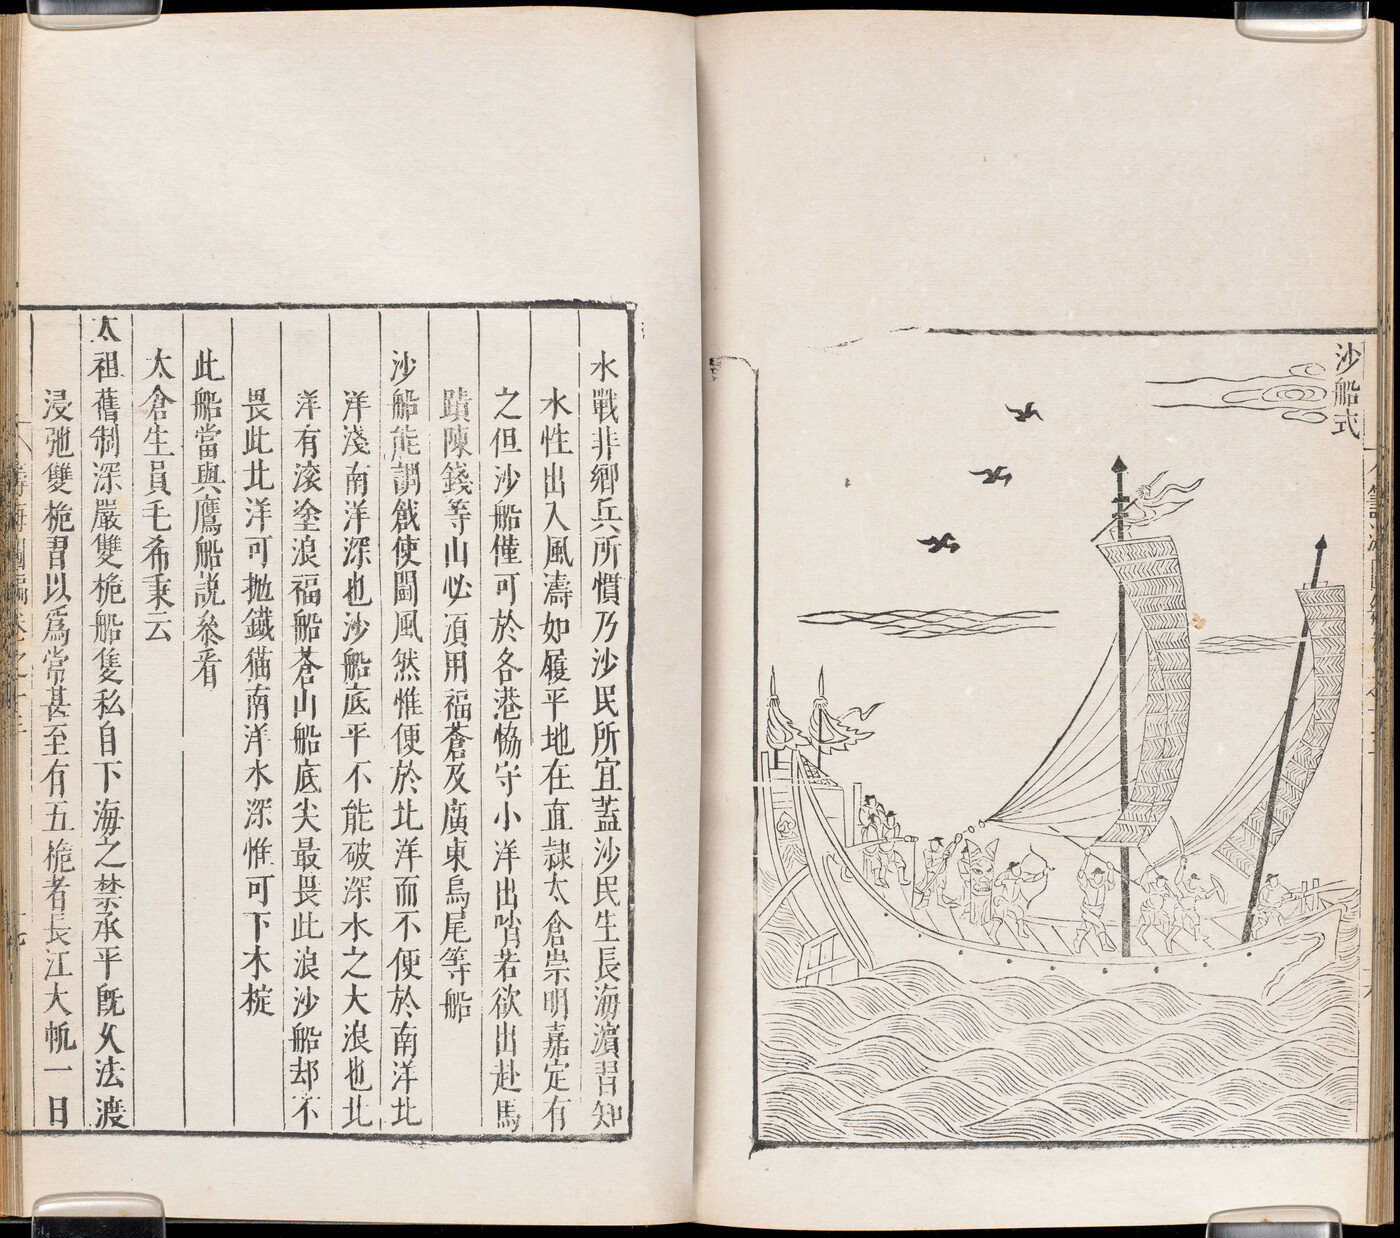 沙船式
水戰非鄉兵所慣乃沙民所宜蓋沙民生長海濱習知
水性出入風濤如履平地在直隷太倉崇明嘉定有
之但沙船僅可於各港協守小洋出哨若欲出赴馬
蹟陳錢等山必湏用福蒼及廣東烏尾等船
沙船能調戧使鬬風然惟便於北洋而不便於南洋北
洋淺南洋深也沙船底平不能破深水之大浪也北
洋有滚塗浪福船蒼山船底尖最畏此浪沙船却不
畏此北洋可抛鐵猫南洋水深惟可下木椗
此船當與鷹船説叅看
太倉生員毛希秉云
太祖舊制深嚴雙桅船隻私自下海之禁承平既久法渡
浸弛雙桅習以爲常甚至有五桅者長江大帆一日